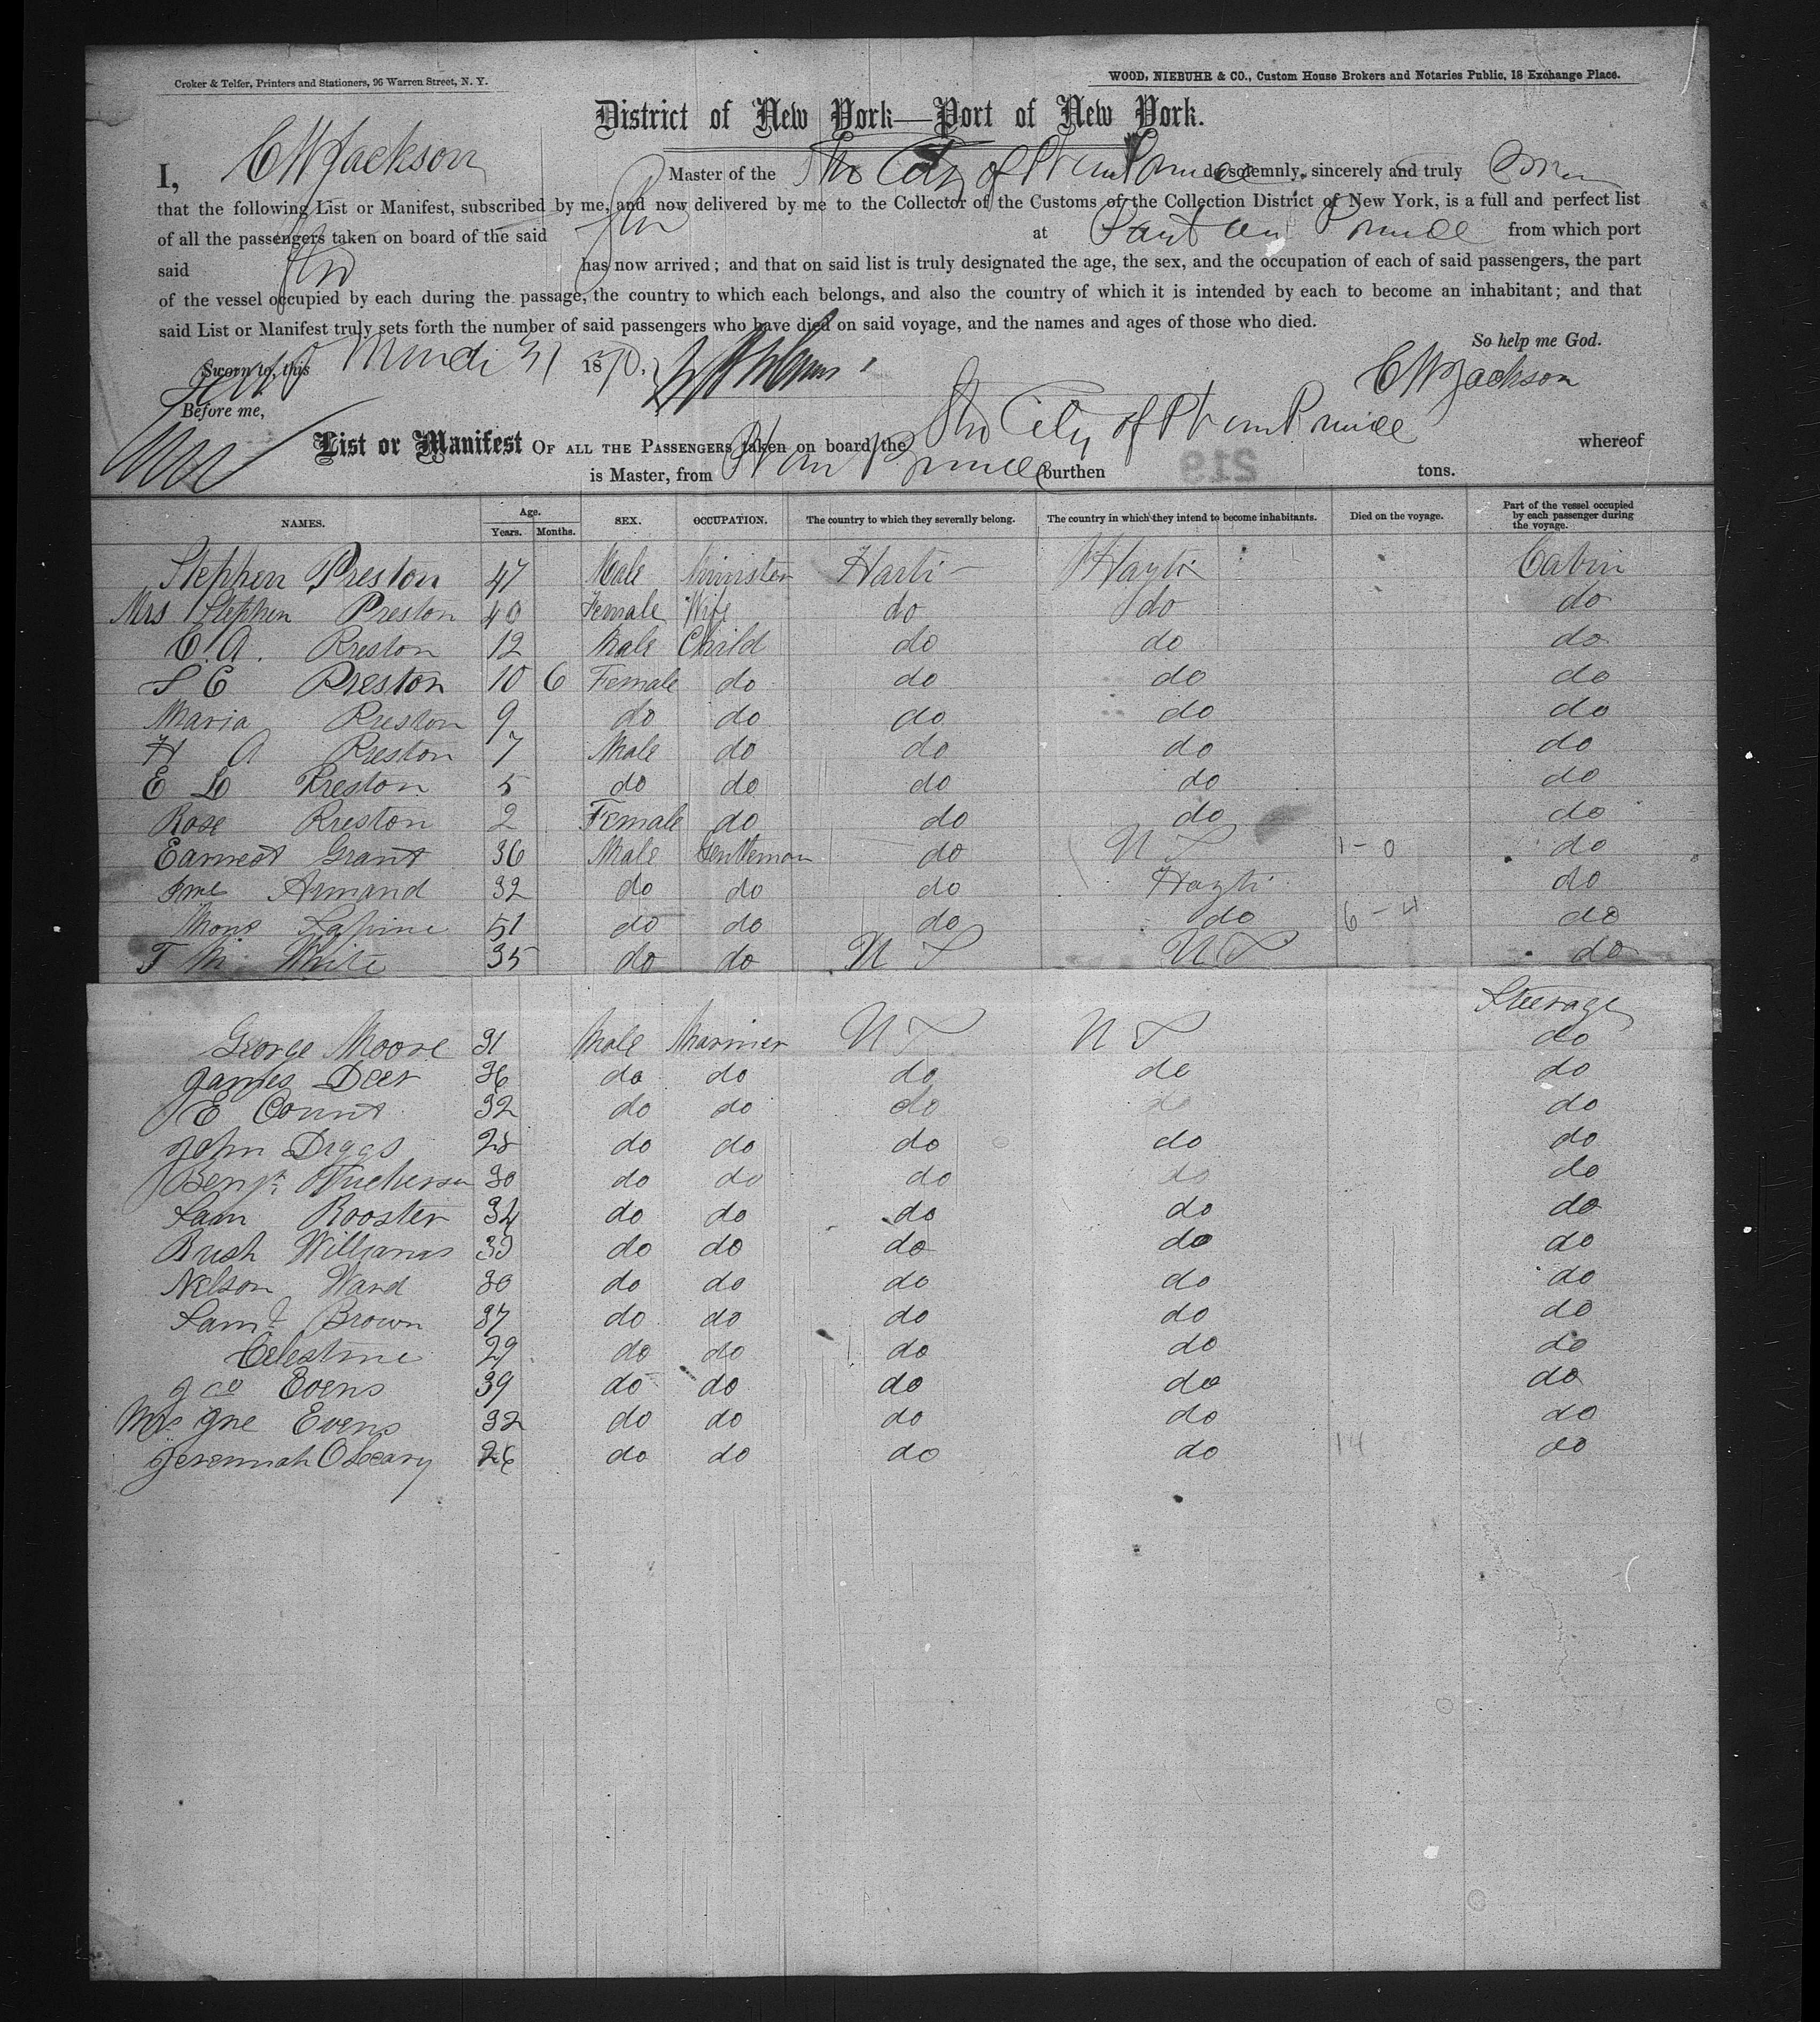 Croker & Telfer, Printers and Stationers, 96 Warren Street, N. Y.
WOOD, NIEBUHR & CO., Custom House Brokers and Notaries Public, 18 Exchange Place.
District of New York—Port of New York.
I, C W Jackson Master of the City of do solemnly, sincerely and truly
that the following List or Manifest, subscribed by me, and now delivered by me to the Collector of the Customs of the Collection District of New York, is a full and perfect list
of all the passengers taken on board of the said at from which port
said has now arrived; and that on said list is truly designated the age, the sex, and the occupation of each of said passengers, the part
of the vessel occupied by each during the passage, the country to which each belongs, and also the country of which it is intended by each to become an inhabitant; and that
said List or Manifest truly sets forth the number of said passengers who have died on said voyage, and the names and ages of those who died.
So help me God.
Sworn to, this 31 1870.
C W Jackson
Before me,
List or Manifest OF ALL THE PASSENGERS taken on board the City of whereof
is Master, from burthen tons.
219
NAMES. Age. Years. Months. SEX. OCCUPATION. The country to which they severally belong. The country in which they intend to become inhabitants. Died on the voyage. Part of the vessel occupied by each passenger during the voyage.
Stephen Preston 47 Male Minister Haiti Hayti Cabin
Mrs Stephen Preston 40 Female Wife do do do
C. A. Preston 12 Male Child do do do
S E Preston 10 6 Female do do do do
Maria Preston 9 do do do do do
H A Preston 7 Male do do do do
E L Preston 5 do do do do do
Rose Preston 2 Female do do do do
Earnest Grant 36 Male Gentleman do U S 1-0 do
Armand 32 do do do Hayti do
Mons 51 do do do do 6-4 do
T M White 35 do do U S U S do
Steerage
George Moore 31 Male Marnier U S U S do
James Deer 36 do do do do do
E Count 32 do do do do do
John Diggs 28 do do do do do
Benjn 30 do do do do do
Sam Rooster 34 do do do do do
Bush Williams 33 do do do do do
Nelson Ward 30 do do do do do
Saml Brown 37 do do do do do
Celestine 29 do do do do do
Geo Evens 39 do do do do do
Mrs Evens 32 do do do do do
Jeremiah OLeary 26 do do do do 14 do